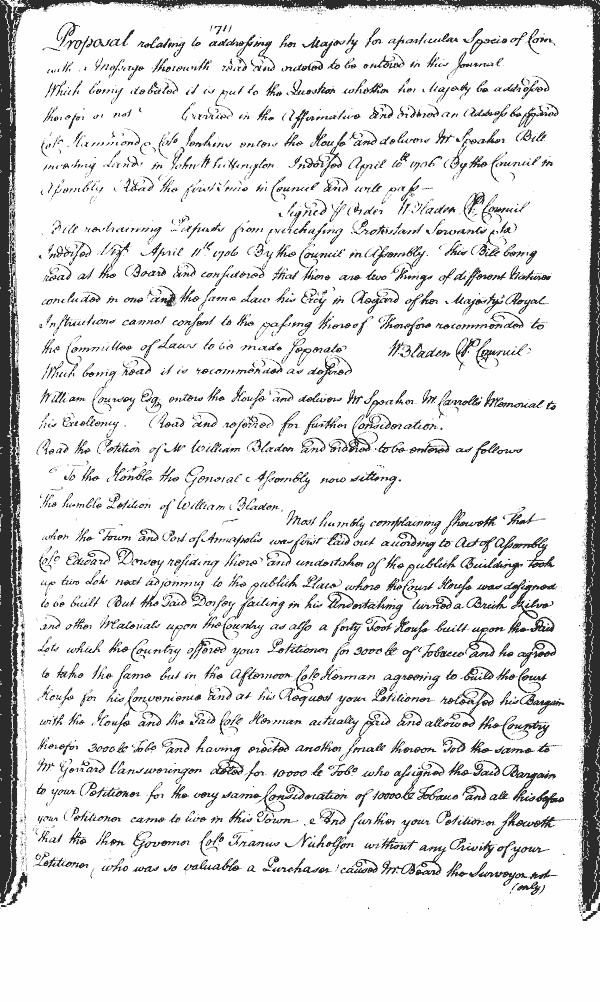 (711)
Proposal relating to addressing her Majesty for a particular Specie of Coin
with a Message therewith read and ordered to be entered in this Journal
Which being debated it is put to the Question whether her Majesty be addressed
therefor or not Carried in the Affirmative and ordered an Address be prepared
Colo. Hammond & Colo Jenkins enters the House and delivers Mr Speaker Bill
investing Lands in John Whittington Indorsed April 10th 1706 By the Council in
Assembly Read the first time in Council and will pass—
Signed p Order W Bladen Cl Council
Bill restraining Papists from purchasing Protestant Servants
Indorsed Vizt. April 11th 1706 By the Council in Assembly. This Bill being
read at the Board and considered that there are two things of different Natures
concluded in one and the same Law his Excy in Regard of her Majestys Royal
Instructions cannot consent to the passing thereof Therefore recommended to
the Committee of Laws to be made seperate W Bladen Cl Council
Which being read it is recommended as desired
William Coursey Esq enters the House and delivers Mr Speaker Mr Carrolls Memorial to
his Excellency. Read and referred for further Consideration.
Read the Petition of Mr William Bladen and ordered to be entered as follows
To the Honble the General Assembly now sitting.
The humble Petition of William Bladen.
Most humbly complaining Sheweth That
when the Town and Port of Annapolis was first laid out according to Act of Assembly
Colo Edward Dorsey residing there and undertaker of the publick Buildings took
up two Lots next adjoining to the publick Place where the Court House was designed
to be built But the said Dorsey failing in his Undertaking turned a Brick Kilne
and other Materials upon the Country as also a forty Foot House built upon the said
Lots which the Country offered your Petitioner for 3000 lb of Tobacco and he agreed
to take the same but in the Afternoon Colo Herman agreeing to build the Court
House for his Convenience and at his Request your Petitioner released his Bargain
with the House and the said Colo Herman actually paid and allowed the Country
therefor 3000 lb Tobo and having erected another small thereon sold the same to
Mr Gerrard Vansweringen for 10000 lb Tobo who assigned the said Bargain
to your Petitioner for the very same Consideration of 10000 lb Tobacco and all this before
your Petitioner came to live in this Town. And further your Petitioner sheweth
that the then Governor Colo Francis Nicholson without any Privity of your
Petitioner, who was so valuable a Purchaser caused Mr Beard the Surveyor not
(only)